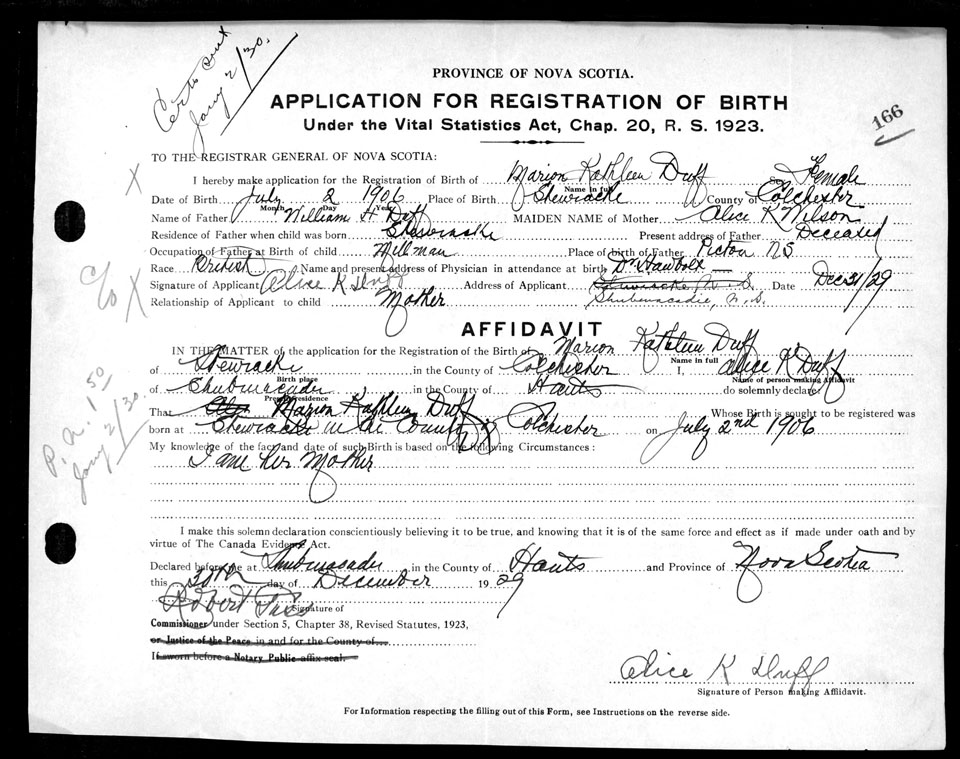 Certe sent
Jany 2/30.
PROVINCE OF NOVA SCOTIA.
APPLICATION FOR REGISTRATION OF BIRTH
Under the Vital Statistics Act, Chap. 20, R. S. 1923.
166
TO THE REGISTRAR GENERAL OF NOVA SCOTIA:
X
I hereby make application for the Registration of Birth of Marion Kathleen Duff Female
Name in full
Date of Birth July 2 1906 Place of Birth Stewiacke County of Colchester
Month Day Year
Name of Father William H Duff MAIDEN NAME of Mother Alice K Wilson
Residence of Father when child was born Stewiacke Present address of Father Deceased
Occupation of Father at Birth of child Millman Place of birth of Father Picton NS
Race British Name and present address of Physician in attendance at birth Dr Hawbolt
c/o X
Signature of Applicant Alice K Duff Address of Applicant Stewiacke N. S. Date Dec 31/29
Shubenacadie, N. S.
Relationship of Applicant to child Mother
AFFIDAVIT
IN THE MATTER of the application for the Registration of the Birth of Marion Kathleen Duff
Name in full
of Stewiacke in the County of Colchester I, Alice K Duff
Birth place Name of person making Affidavit
of Shubenacadie in the County of Hants do solemnly declare.
Present residence
P. A. 1 50
Jany 2/30.
That Marion Kathleen Duff Whose Birth is sought to be registered was
born at Stewiacke in the County of Colchester on July 2nd 1906
My knowledge of the fact and date of such Birth is based on the following Circumstances:
I am her Mother
I make this solemn declaration conscientiously believing it to be true, and knowing that it is of the same force and effect as if made under oath and by
virtue of The Canada Evidence Act.
Declared before me at Shubenacadie in the County of Hants and Province of Nova Scotia
this 30th day of December 1929
Robert
Signature of
Commissioner under Section 5, Chapter 38, Revised Statutes, 1923,
or Justice of the Peace in and for the County of
If sworn before a Notary Public affix seal.
Alice K Duff
Signature of Person making Affidavit.
For Information respecting the filling out of this Form, see Instructions on the reverse side.